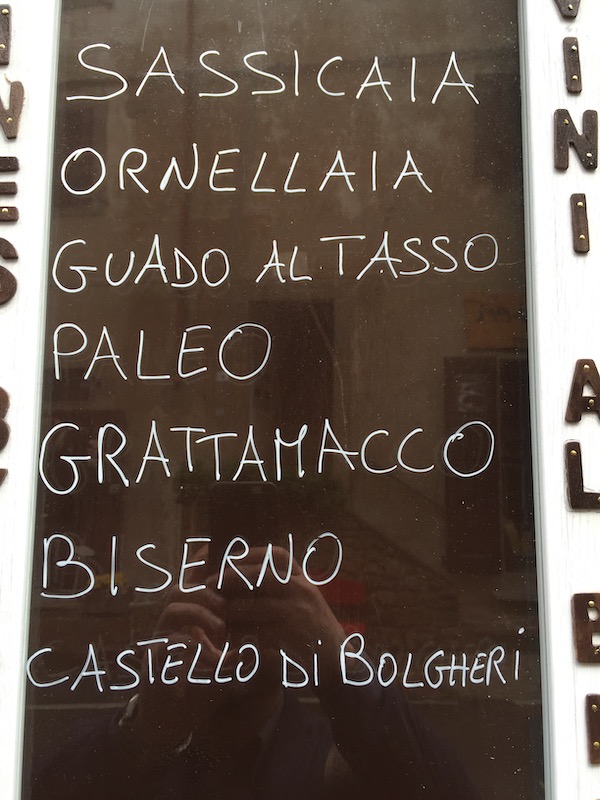 SASSICAIA
ORNELLAIA
GUADO AL TASSO
PALEO
GRATTAMACCO
BISERNO
CASTELLO Di BOLGHERi
VINI AL